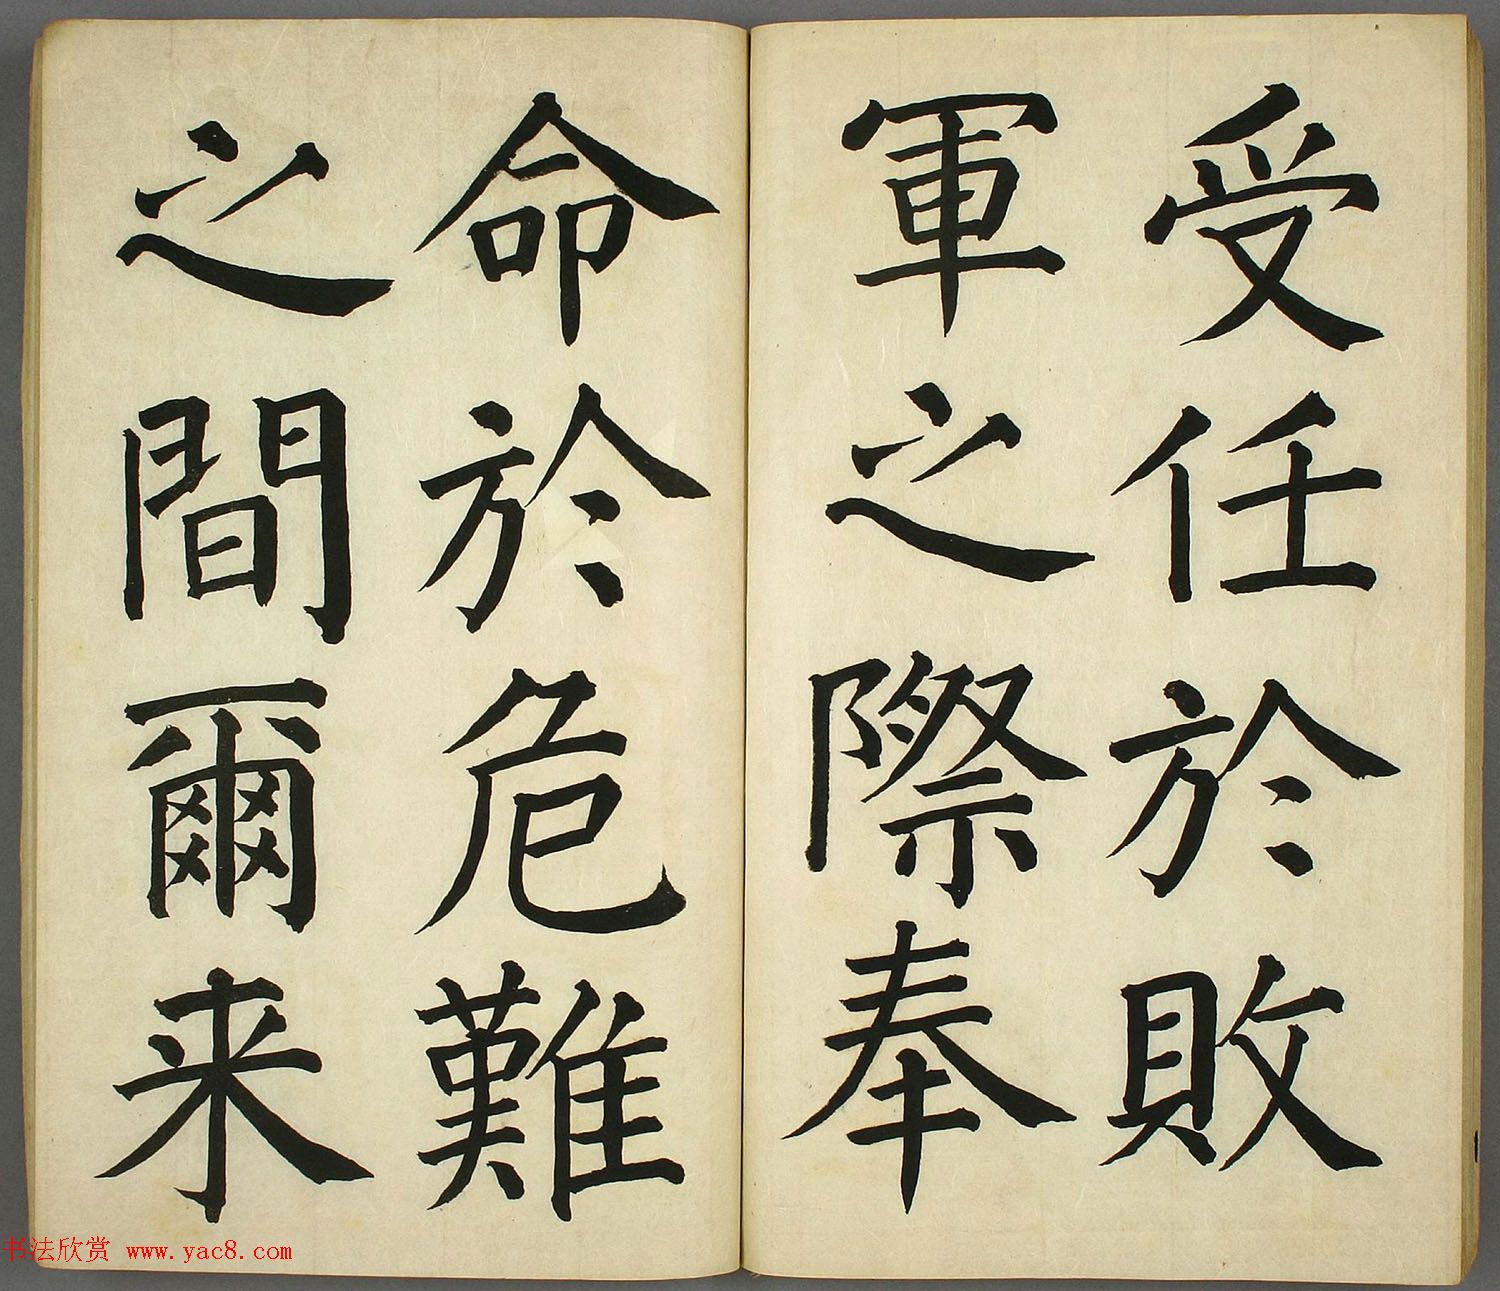 受任於敗
軍之際奉
命於危難
之間爾来
书法欣赏 www.yac8.com